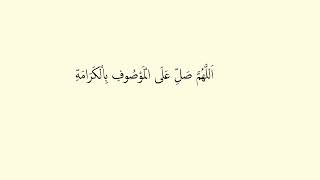 اَللَّهُمَّ صَلِّ عَلَى الْمَوْصُوفِ بِالْكَرَامَةِ